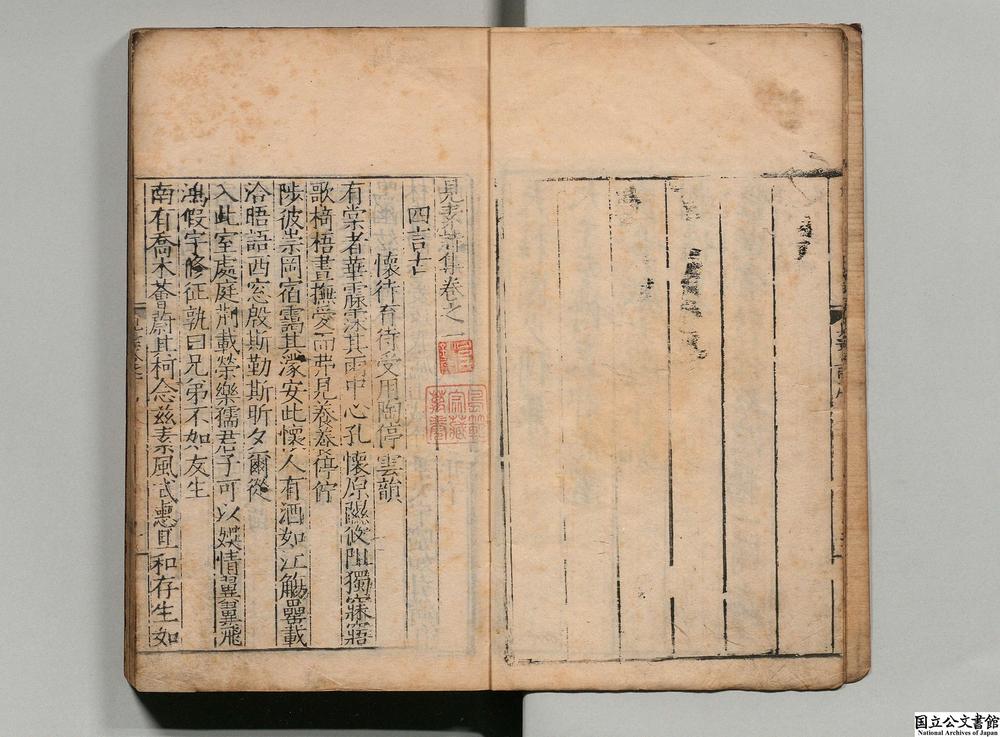 見素詩集卷之一
四言古
懷待育待受用陶停雲韻
有棠者華霖霖其雨中心孔懷原隰攸阻獨寐寤
歌椅梧晝撫愛而弗見養養佇
陟彼崇岡宿靄其濛安此懷人有酒如江觴罍載
洽晤語西窓殷斯勤斯昕夕爾從
入此室處庭荊載榮樂孺君子可以娛情翼翼飛
鴻假字修征孰曰兄弟不如友生
南有喬木薈蔚其柯念茲素風式惠且和存生如
国立公文書館
National Archives of Japan